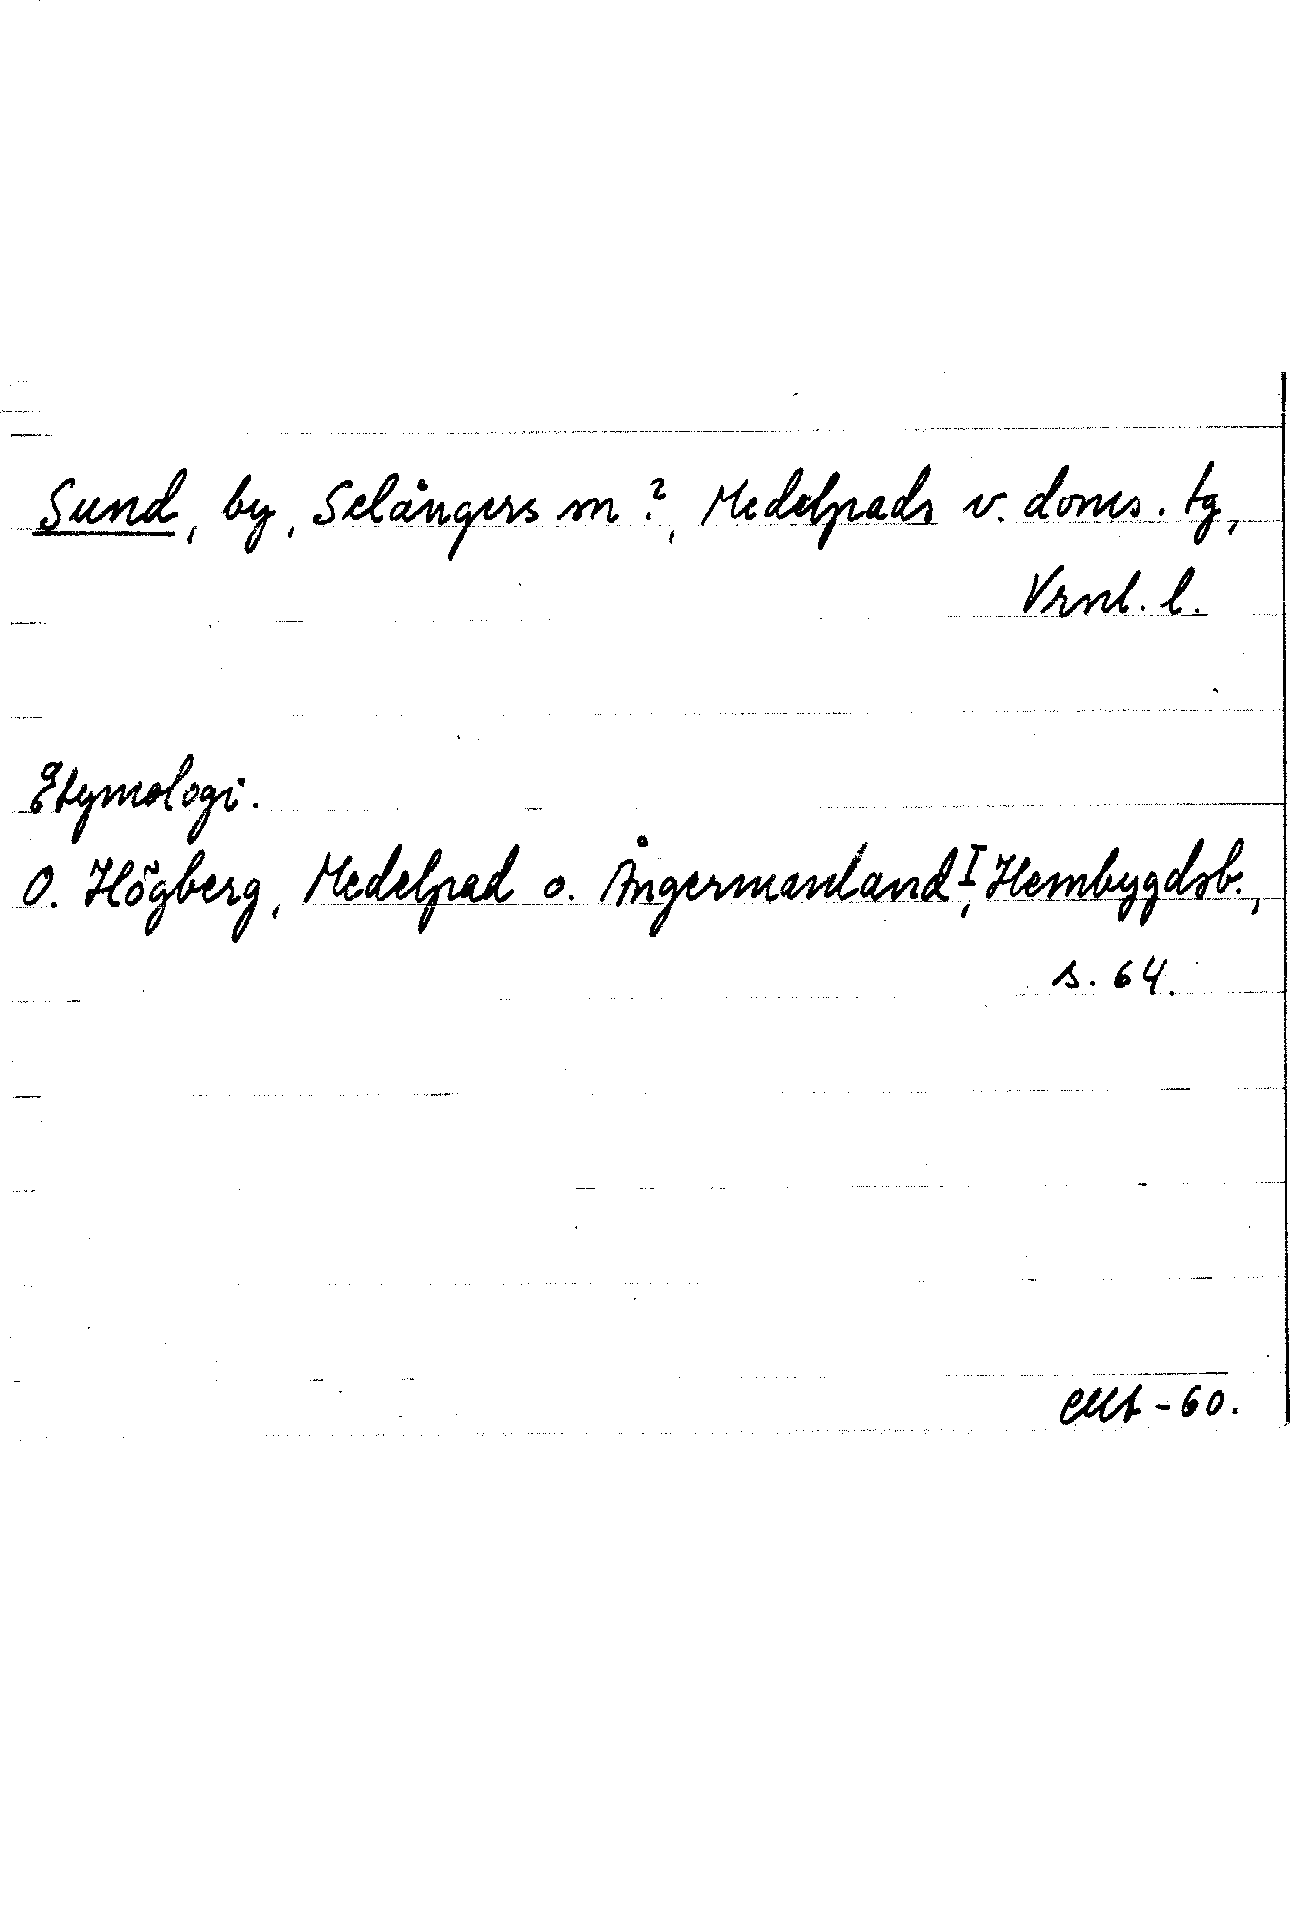 Sund, by, Selångers sn?, Medelpads v. doms. tg,
Vrnl. l.
Etymologi.
O. Högberg, Medelpad o. Ångermanland I, Hembygdsb.,
s. 64.
-60.